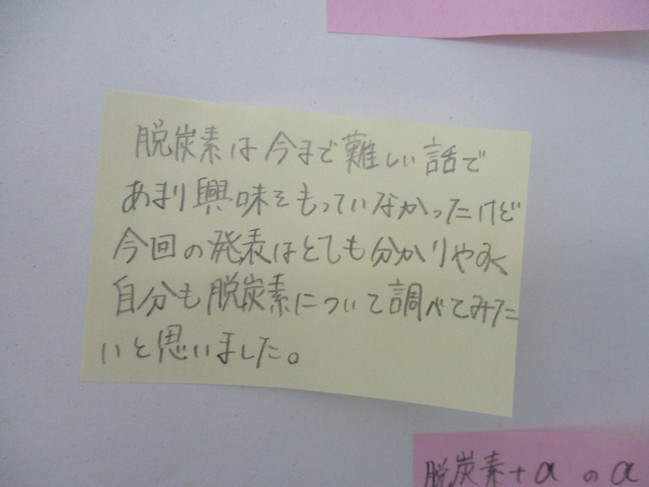 脱炭素は今まで難しい話で
あまり興味をもっていなかったけど
今回の発表はとても分かりやすく
自分も脱炭素について調べてみた
いと思いました。
脱炭素+αのα